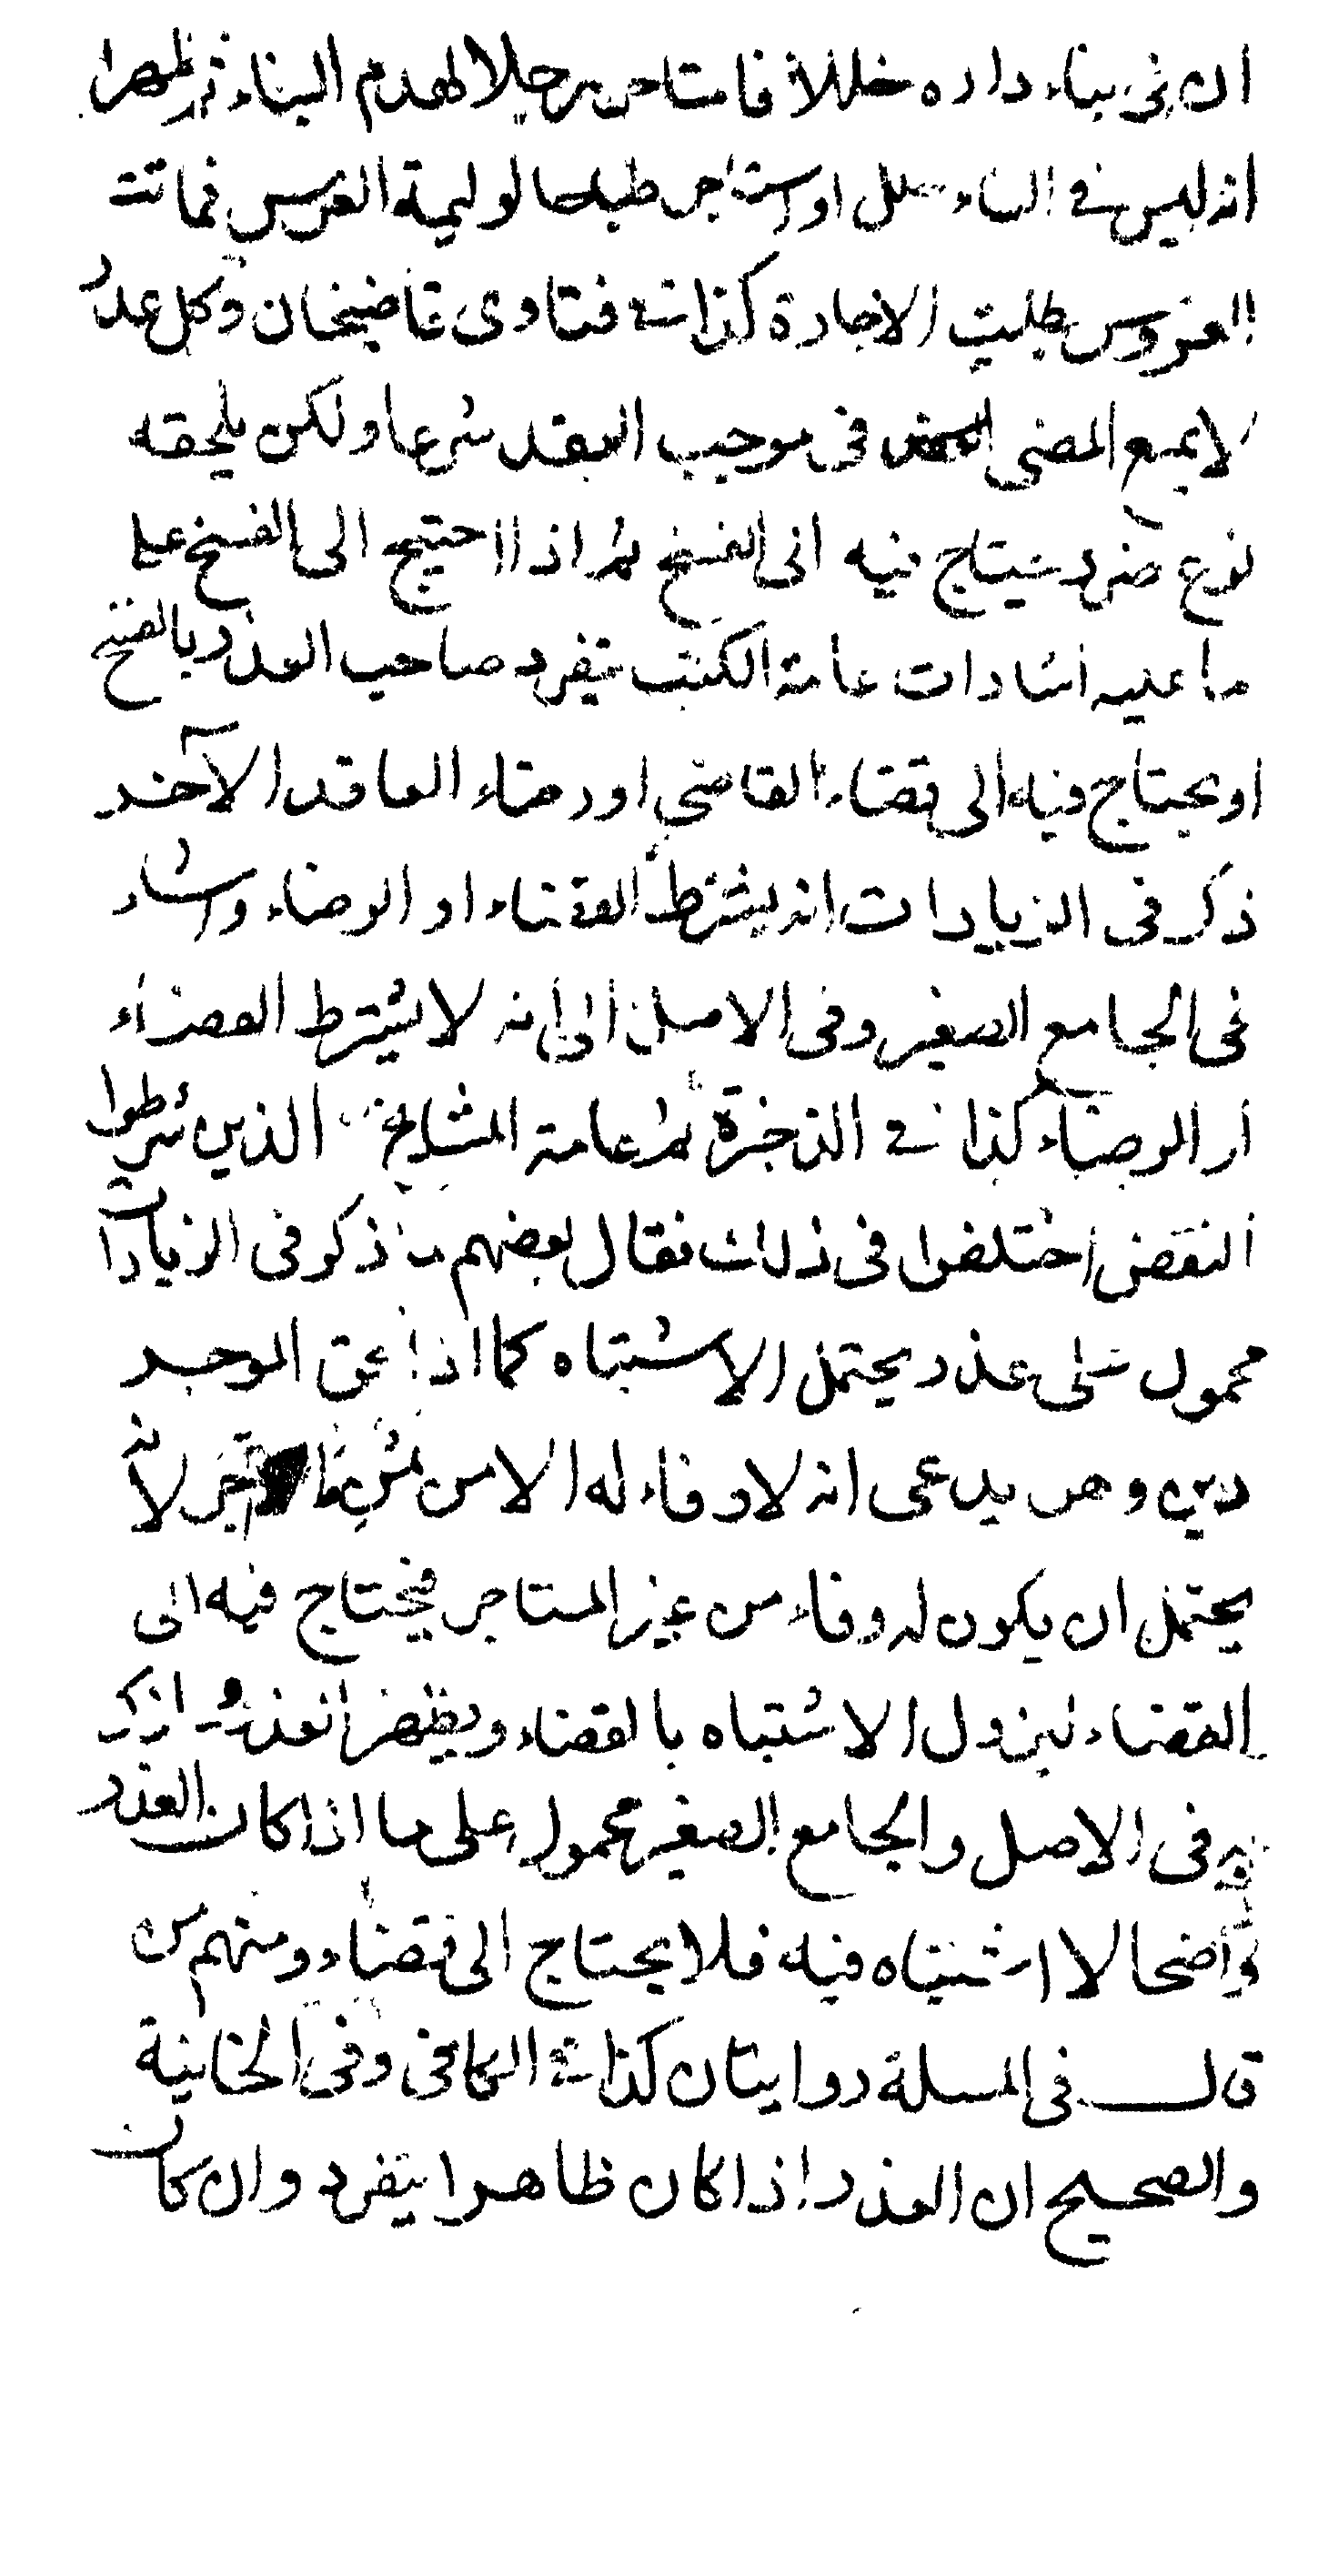 ان في بناء داره خللا فاستاجر رجلا لهدم البناء ثم ظهر
انه ليس في البناء خلل او استاجر طباخا لوليمة العرس فماتت
العروس بطلت الاجارة كذا في فتاوى قاضيخان وكل عذر
لا يمنع المضي في موجب العقد شرعا ولكن يلحقه
نوع ضرر يحتاج فيه الى الفسخ ثم اذا احتيج الى الفسخ على
ما عليه اشارات عامة الكتب يتفرد صاحب العذر بالفسخ
او يحتاج فيه الى قضاء القاضي او رضاء العاقد الآخر
ذكر في الزيادات انه يشترط القضاء او الرضاء واشار
في الجامع الصغير وفي الاصل الى انه لا يشترط القضاء
او الرضاء كذا في الذخيرة ثم عامة المشايخ الذين شرطوا
النقض اختلفوا في ذلك فقال بعضهم ما ذكر في الزيادات
محمول على عذر يحتمل الاشتباه كما اذا لحق الموجر
دين وهو يدعي انه لا وفاء له الا من ثمن لانه
يحتمل ان يكون له وفاء من غير المستاجر فيحتاج فيه الى
القضاء ليزول الاشتباه بالقضاء ويظهر العذر وما ذكر
في الاصل والجامع الصغير محمول على ما اذا كان العذر
واضحا لا اشتباه فيه فلا يحتاج الى قضاء ومنهم من
قال في المسلة روايتان كذا في الكافي وفي الخانية
والصحيح ان العذر اذا كان ظاهرا يتفرد وان كان